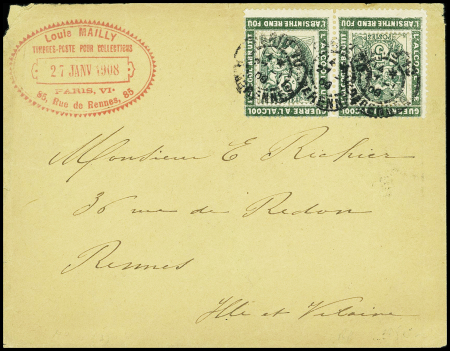 Louis MAILLY
TIMBRES-POSTE POUR COLLECTIONS
27 JANV 1908
PARIS, VIᵉ
85, Rue de Rennes, 85
L'ABSINTHE REND FOU
L'ABSINTHE REND FOU
GUERRE A L'ALCOOL
GUERRE A L'ALCOOL
Monsieur E Richier
36 rue de Redon
Rennes
Ille et Vilaine